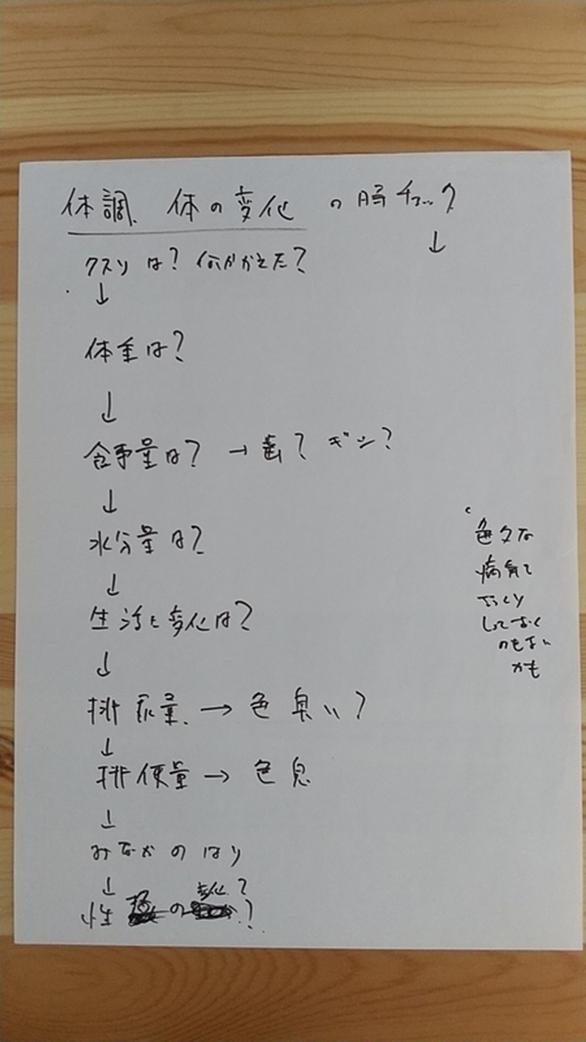 体調、体の変化 の時チェック
↓
クスリは？ 何かかえた？
↓
体重は？
↓
食事量は？ → 歯？ ギシ？
↓
水分量は？
↓
生活も変化は？
↓
排尿量、→ 色臭い？
↓
排便量 → 色
↓
のはり
↓
性 の変化？
色々な
病気で
しておく
のもよい
かも